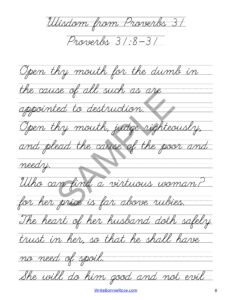 Wisdom from Proverbs 31
Proverbs 31:8-31
Open thy mouth for the dumb in
the cause of all such as are
appointed to destruction.
Open thy mouth, judge righteously,
and plead the cause of the poor and
needy.
Who can find a virtuous woman?
for her price is far above rubies.
The heart of her husband doth safely
trust in her, so that he shall have
no need of spoil.
She will do him good and not evil
SAMPLE
WriteBonnieRose.com